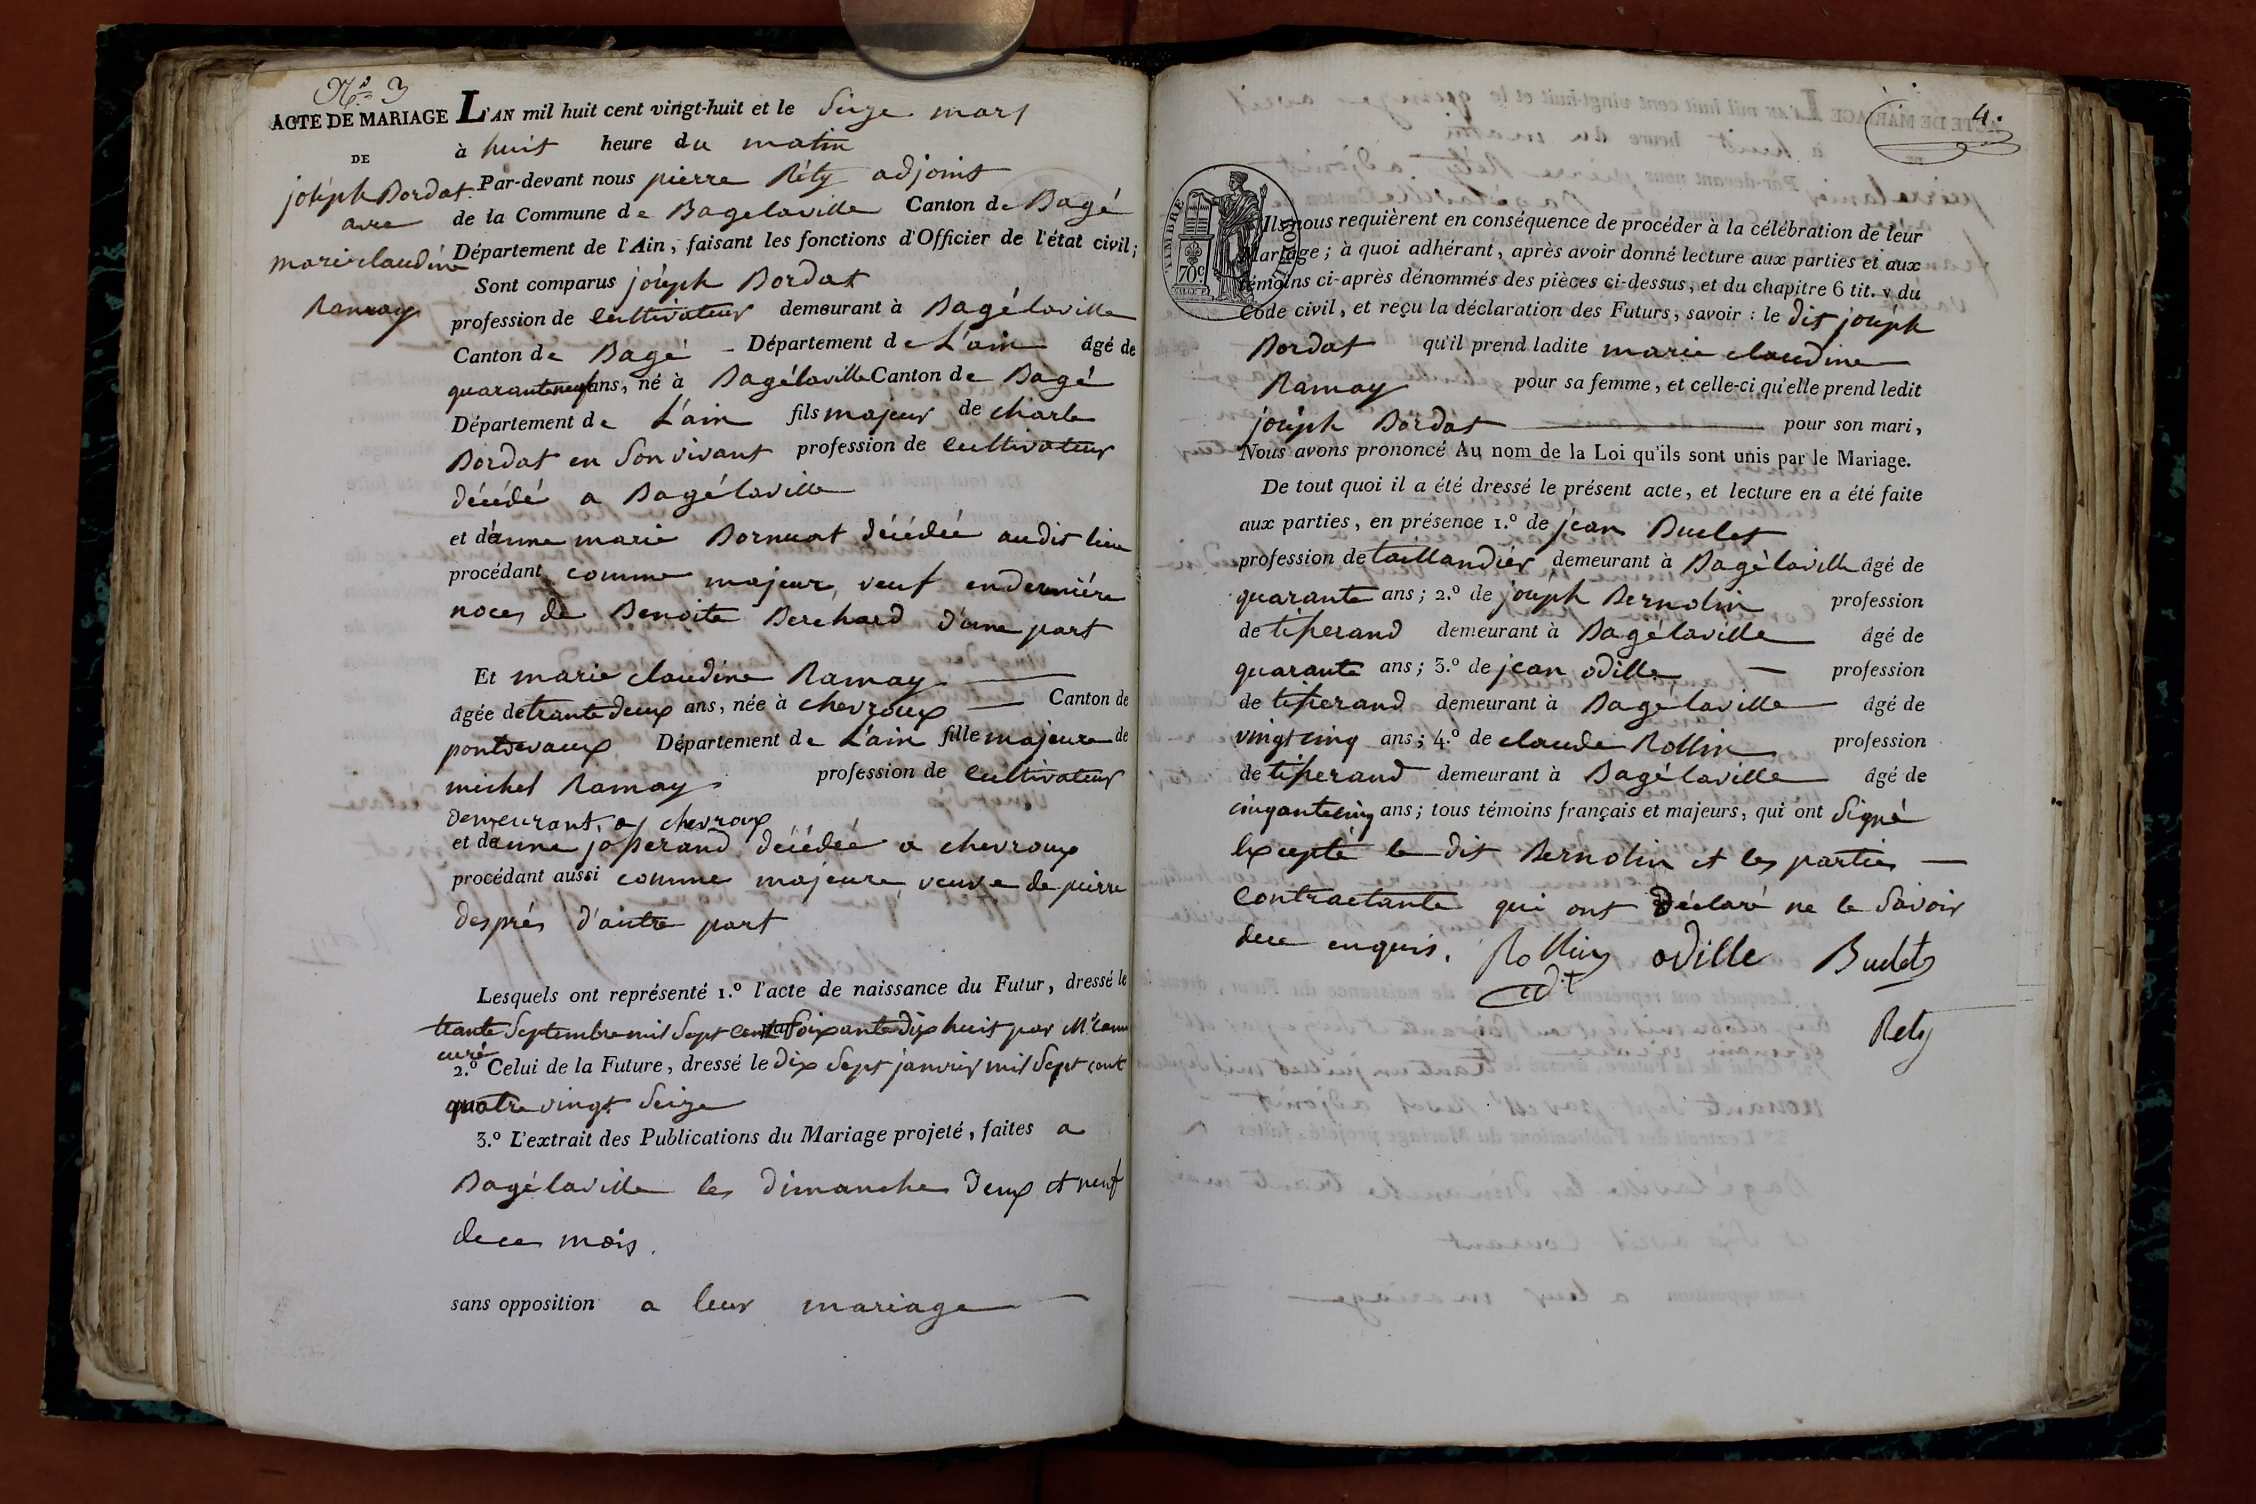 N.o 3
ACTE DE MARIAGE
DE
joseph Bordat
avec
marie claudine
Ramay
L'AN mil huit cent vingt-huit et le Seize mars
à huit heure du matin
Par-devant nous pierre Réty adjoint
de la Commune de Bagelaville Canton de Bagé
Département de l'Ain, faisant les fonctions d'Officier de l'état civil;
Sont comparus joseph Bordat
profession de cultivateur demeurant à Bagélaville
Canton de Bagé – Département de L'ain âgé de
quaranteneuf ans, né à Bagélaville Canton de Bagé
Département de L'ain fils majeur de charle
Bordat en Son vivant profession de cultivateur
décédé a Bagélaville
et d'anne marie décédée audit lieu
procédant comme majeur, veuf en derniére
noces de Benoite Berchard d'une part
Et marie claudine Ramay
âgée de trante deux ans, née à chevroux Canton de
pontdevaux Département de L'ain fille majeure de
michel Ramay profession de cultivateur
demeurant a chevroux
et d'anne décédée a chevroux
procédant aussi comme majeure, veuve de pierre
després d'autre part
Lesquels ont représenté 1.º l'acte de naissance du Futur, dressé le
trante Septembre mil Sept cent Soixante dix huit par Mr
curé
2.º Celui de la Future, dressé le dix Sept janvier mil Sept cent
quatre vingt Seize
3.º L'extrait des Publications du Mariage projeté, faites a
Bagélaville les dimanches deux et neuf
de ce mois.
sans opposition a leur mariage
4.
TIMBRE ROYAL
70c
Ils nous requièrent en conséquence de procéder à la célébration de leur
Mariage; à quoi adhérant, après avoir donné lecture aux parties et aux
témoins ci-après dénommés des pièces ci-dessus, et du chapitre 6 tit. v du
Code civil, et reçu la déclaration des Futurs, savoir : le dit joseph
Bordat qu'il prend ladite marie claudine
Ramay pour sa femme, et celle-ci qu'elle prend ledit
joseph Bordat pour son mari,
Nous avons prononcé Au nom de la Loi qu'ils sont unis par le Mariage.
De tout quoi il a été dressé le présent acte, et lecture en a été faite
aux parties, en présence 1.º de jean Buclet
profession de taillandiér demeurant à Bagélaville âgé de
quarante ans; 2.º de joseph Bernolin profession
de tiherand demeurant à Bagélaville âgé de
quarante ans; 3.º de jean odille profession
de tiherand demeurant à Bagélaville âgé de
vingt cinq ans; 4.º de claude Rollin profession
de tiherand demeurant à Bagélaville âgé de
cinquantecinq ans; tous témoins français et majeurs, qui ont Signé
Excepté le dit Bernolin et les parties
contractante qui ont déclaré ne le Savoir
dece enquis. Rollin odille Buclet
Rety